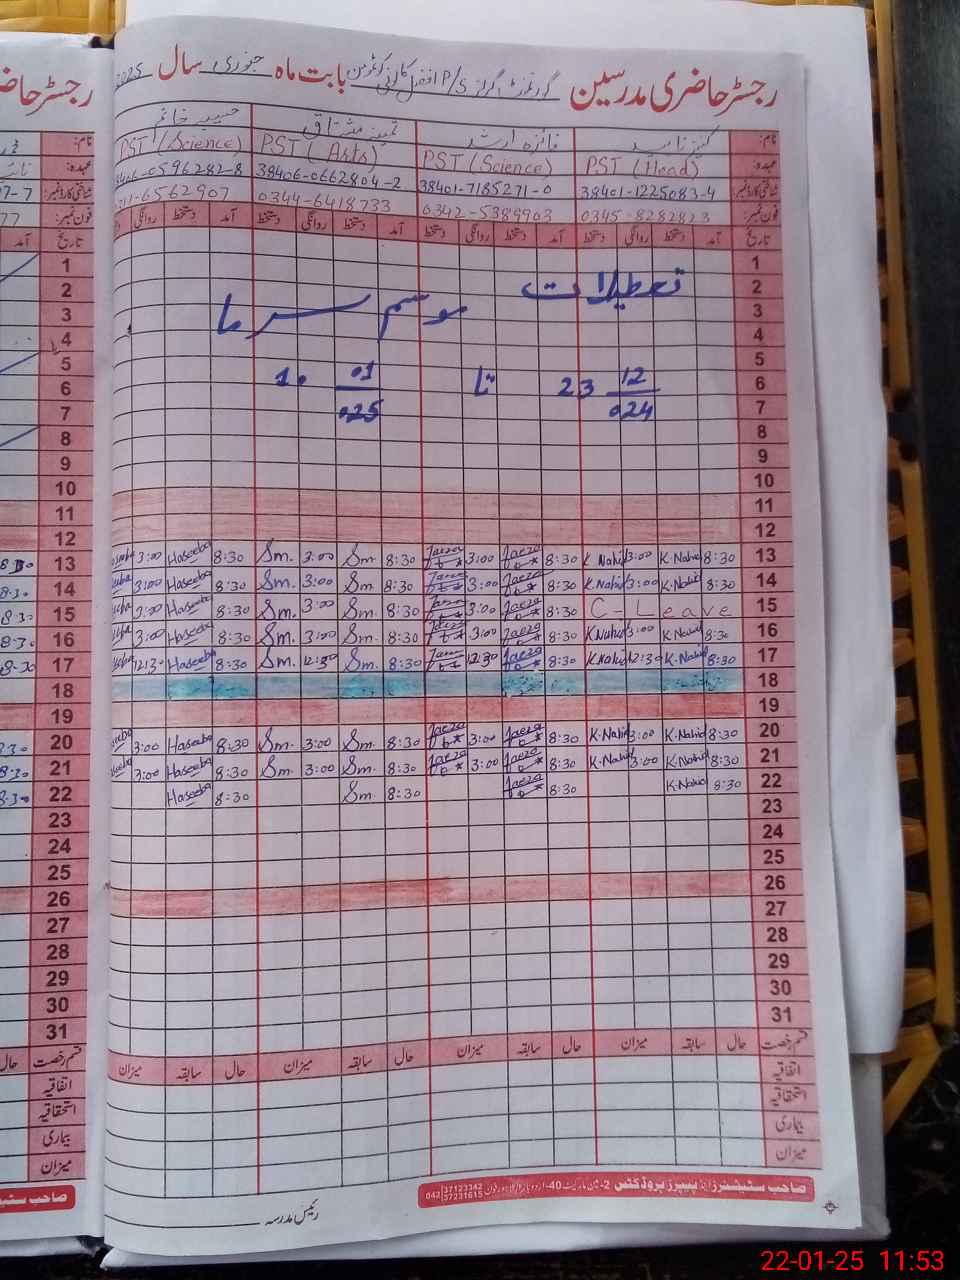 رجسٹر حاضری مدرسین گورنمنٹ گرلز P/S افضل کالونی بابت ماہ جنوری سال 2025
نام: کنیز ناہید فائزہ ارشد ثمینہ مشتاق حسیبہ خانم
عہدہ: PST (Head) PST (Science) PST (Arts) PST (Science)
شناختی کارڈ نمبر: 38401-1225083-4 38401-7185271-0 38406-0662804-2 38406-0596282-8
فون نمبر: 0345-8282823 0342-5389903 0344-6418733 6562907
تاریخ آمد دستخط روانگی دستخط آمد دستخط روانگی دستخط آمد دستخط روانگی دستخط آمد دستخط روانگی
1
2 تعطیلات
3 موسم سرما
4
5
6 23 12 تا 10 01
7 024 025
8
9
10
11
12
13 8:30 K.Nahid 3:00 K.Nahid 8:30 Faeza 3:00 Faeza 8:30 Sm 3:00 Sm. 8:30 Haseeba 3:00
14 8:30 K.Nahid 3:00 K.Nahid 8:30 Faeza 3:00 Faeza 8:30 Sm 3:00 Sm. 8:30 Haseeba 3:00
15 C-Leave 8:30 Faeza 3:00 Faeza 8:30 Sm 3:00 Sm. 8:30 Haseeba 3:00
16 8:30 K.Nahid 3:00 K.Nahid 8:30 Faeza 3:00 Faeza 8:30 Sm 3:00 Sm. 8:30 Haseeba 3:00
17 8:30 K.Nahid 12:30 K.Nahid 8:30 Faeza 12:30 Faeza 8:30 Sm 12:30 Sm. 8:30 Haseeba 12:30
18
19
20 8:30 K.Nahid 3:00 K.Nahid 8:30 Faeza 3:00 Faeza 8:30 Sm. 3:00 Sm. 8:30 Haseeba 3:00
21 8:30 K.Nahid 3:00 K.Nahid 8:30 Faeza 3:00 Faeza 8:30 Sm. 3:00 Sm. 8:30 Haseeba 3:00
22 8:30 K.Nahid 8:30 Faeza 8:30 Sm. 8:30 Haseeba
23
24
25
26
27
28
29
30
31
قسم رخصت حال سابقہ میزان حال سابقہ میزان حال سابقہ میزان حال سابقہ میزان
اتفاقیہ
استحقاقیہ
بیماری
میزان
صاحب سٹیشنرز اینڈ پیپرز پروڈکٹس 042 37123342 37231615
رئیس مدرسہ
رجسٹر حاضری
نام:
عہدہ:
شناختی کارڈ نمبر: 7-7
فون نمبر: 77
تاریخ آمد
1
2
3
4
5
6
7
8
9
10
11
12
13 8:30
14 8:30
15 8:30
16 8:30
17 8:30
18
19
20 8:30
21 8:30
22 8:30
23
24
25
26
27
28
29
30
31
قسم رخصت حال
اتفاقیہ
استحقاقیہ
بیماری
میزان
صاحب
22-01-25 11:53